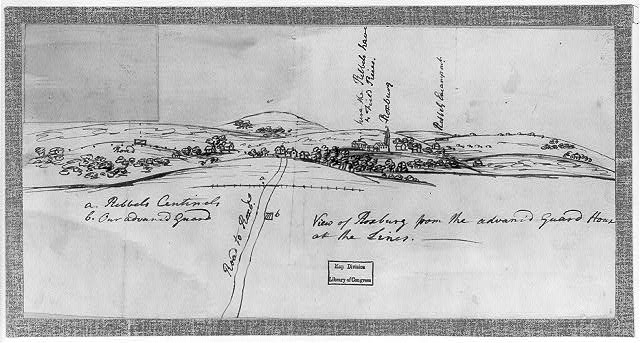 here the Rebbels have
4 Field Pieces.
Roxburg
Rebbel Encampmt.
Road
a
a. Rebbels Centinels
b. Our advanc'd Guard
b
Road to Roxbg.
View of Roxburg from the advanc'd Guard House
at the Lines.
Map Division
Library of Congress